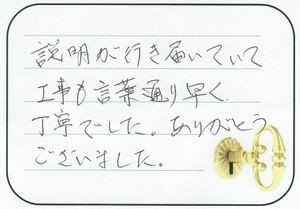 説明が行き届いていて
工事も言葉通り早く、
丁寧でした。ありがとう
ございました。